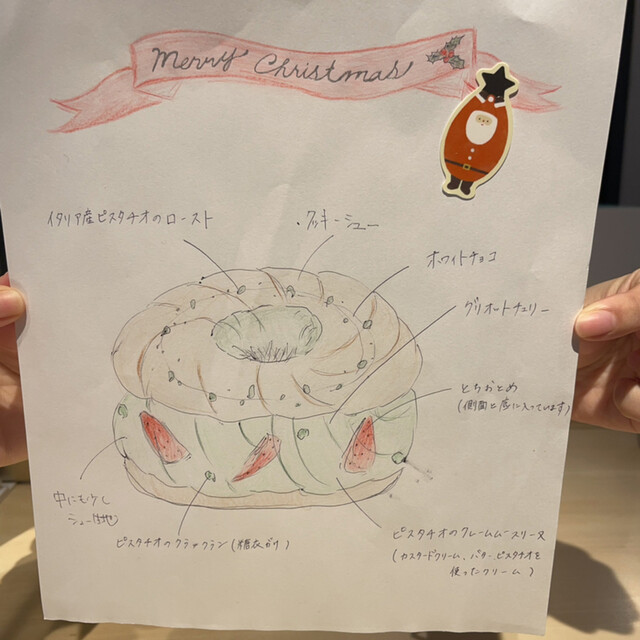 Merry Christmas
イタリア産ピスタチオのロースト
・クッキーシュー
ホワイトチョコ
グリオートチェリー
とちおとめ
(側面と底に入っています)
中にも少し
シュー生地
ピスタチオのクラックラン(糖衣がけ)
ピスタチオのクレームムースリーヌ
(カスタードクリーム、バター、ピスタチオを
使ったクリーム)